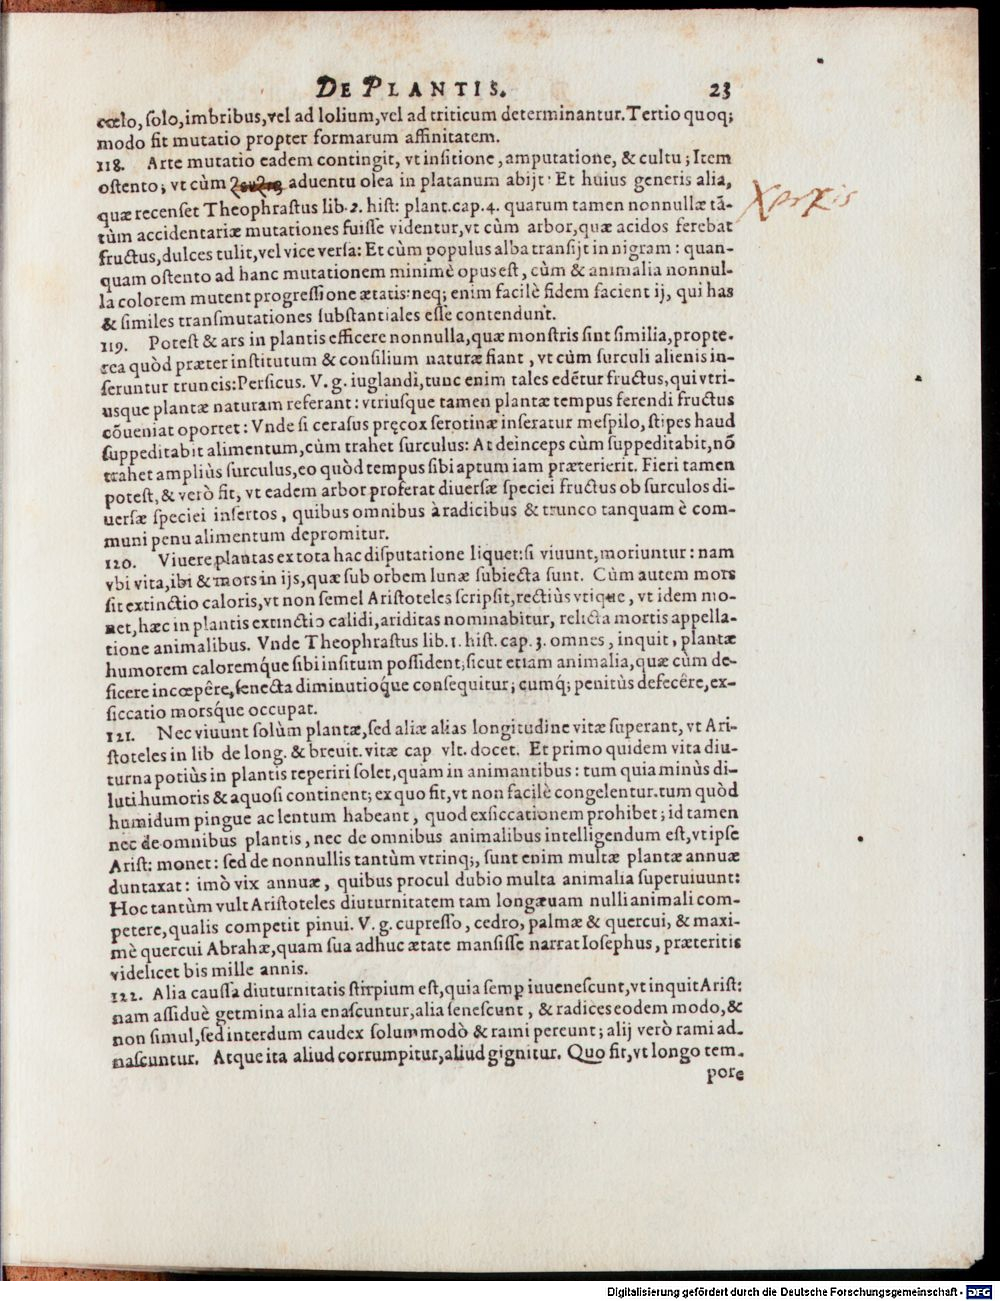 DE PLANTIS. 23
cœlo, solo, imbribus, vel ad lolium, vel ad triticum determinantur. Tertio quoq;
modo fit mutatio propter formarum affinitatem.
118. Arte mutatio eadem contingit, vt insitione, amputatione, & cultu; Item
ostento; vt cùm aduentu olea in platanum abijt: Et huius generis alia,
Xerxis
quæ recenset Theophrastus lib. 2. hist: plant. cap. 4. quarum tamen nonnullæ tã-
tùm accidentariæ mutationes fuisse videntur, vt cùm arbor, quæ acidos ferebat
fructus, dulces tulit, vel vice versa: Et cùm populus alba transijt in nigram: quan-
quam ostento ad hanc mutationem minimè opus est, cùm & animalia nonnul-
la colorem mutent progressione ætatis: neq; enim facilè fidem facient ij, qui has
& similes transmutationes substantiales esse contendunt.
119. Potest & ars in plantis efficere nonnulla, quæ monstris sint similia, propte-
rea quòd præter institutum & consilium naturæ fiant, vt cùm surculi alienis in-
seruntur truncis: Persicus. V. g. iuglandi, tunc enim tales edẽtur fructus, qui vtri-
usque plantæ naturam referant: vtriusque tamen plantæ tempus ferendi fructus
cõueniat oportet: Vnde si cerasus pręcox serotinæ inseratur mespilo, stipes haud
suppeditabit alimentum, cùm trahet surculus: At deinceps cùm suppeditabit, nõ
trahet ampliùs surculus, eo quòd tempus sibi aptum iam præterierit. Fieri tamen
potest, & verò fit, vt eadem arbor proferat diuersæ speciei fructus ob surculos di-
uersæ speciei insertos, quibus omnibus à radicibus & trunco tanquam è com-
muni penu alimentum depromitur.
120. Viuere plantas ex tota hac disputatione liquet: si viuunt, moriuntur: nam
vbi vita, ibi & mors in ijs, quæ sub orbem lunæ subiecta sunt. Cùm autem mors
sit extinctio caloris, vt non semel Aristoteles scripsit, rectiùs vtique, vt idem mo-
net, hæc in plantis extinctio calidi, ariditas nominabitur, relicta mortis appella-
tione animalibus. Vnde Theophrastus lib. 1. hist. cap. 3. omnes, inquit, plantæ
humorem caloremq́ue sibi insitum possident, sicut etiam animalia, quæ cùm de-
ficere incœpêre, senecta diminutioq́ue consequitur; cumq; penitùs defecêre, ex-
siccatio morsq́ue occupat.
121. Nec viuunt solùm plantæ, sed aliæ alias longitudine vitæ superant, vt Ari-
stoteles in lib de long. & breuit. vitæ cap vlt. docet. Et primo quidem vita diu-
turna potiùs in plantis reperiri solet, quàm in animantibus: tum quia minùs di-
luti humoris & aquosi continent; ex quo fit, vt non facilè congelentur. tum quòd
humidum pingue ac lentum habeant, quod exsiccationem prohibet; id tamen
nec de omnibus plantis, nec de omnibus animalibus intelligendum est, vt ipse
Arist: monet: sed de nonnullis tantùm vtrinq;, sunt enim multæ plantæ annuæ
duntaxat: imò vix annuæ, quibus procul dubio multa animalia superuiuunt:
Hoc tantùm vult Aristoteles diuturnitatem tam longæuam nulli animali com-
petere, qualis competit pinui. V. g. cupresso, cedro, palmæ & quercui, & maxi-
mè quercui Abrahæ, quam sua adhuc ætate mansisse narrat Iosephus, præteritis
videlicet bis mille annis.
122. Alia caussa diuturnitatis stirpium est, quia semp iuuenescunt, vt inquit Arist:
nam assiduè germina alia enascuntur, alia senescunt, & radices eodem modo, &
non simul, sed interdum caudex solummodò & rami pereunt; alij verò rami ad-
nascuntur. Atque ita aliud corrumpitur, aliud gignitur. Quo fit, vt longo tem-
pore
Digitalisierung gefördert durch die Deutsche Forschungsgemeinschaft - DFG